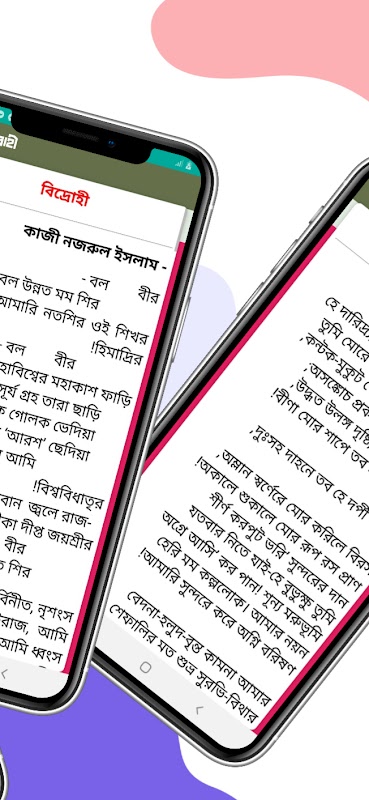 বিদ্রোহী
কাজী নজরুল ইসলাম -
বল বীর -
বল উন্নত মম শির
আমারি নতশির ওই শিখর
!হিমাদ্রির
বল বীর -
মহাকাশ ফাড়ি
সূর্য গ্রহ তারা ছাড়ি
গোলক ভেদিয়া
'আরশ' ছেদিয়া
আমি
!বিশ্ববিধাতৃর
জ্বলে রাজ-
দীপ্ত জয়শ্রীর
বীর
শির
নৃশংস
আমি
আমি ধ্বংস
হে দারিদ্র্য
তুমি মোরে
,কন্টক-মুকুট
,অসঙ্কোচ
,উদ্ধত উলঙ্গ দৃষ্টি
!বীণা মোর শাপে তব
,দুঃসহ দাহনে তব হে দর্পী
,অম্লান স্বর্ণেরে মোর করিলে বিরস
!অকালে শুকালে মোর রূপ রস প্রাণ
শীর্ণ করপুট ভরি' সুন্দরের দান
যতবার নিতে যাই-হে বুভুক্ষু তুমি
অগ্রে আসি' কর পান! শূন্য মরুভূমি
হেরি মম কল্পলোক। আমার নয়ন
!আমারি সুন্দরে করে অগ্নি বরিষণ
বেদনা-হলুদ-বৃন্ত কামনা আমার
শেফালির মত শুভ্র সুরভি-বিথার